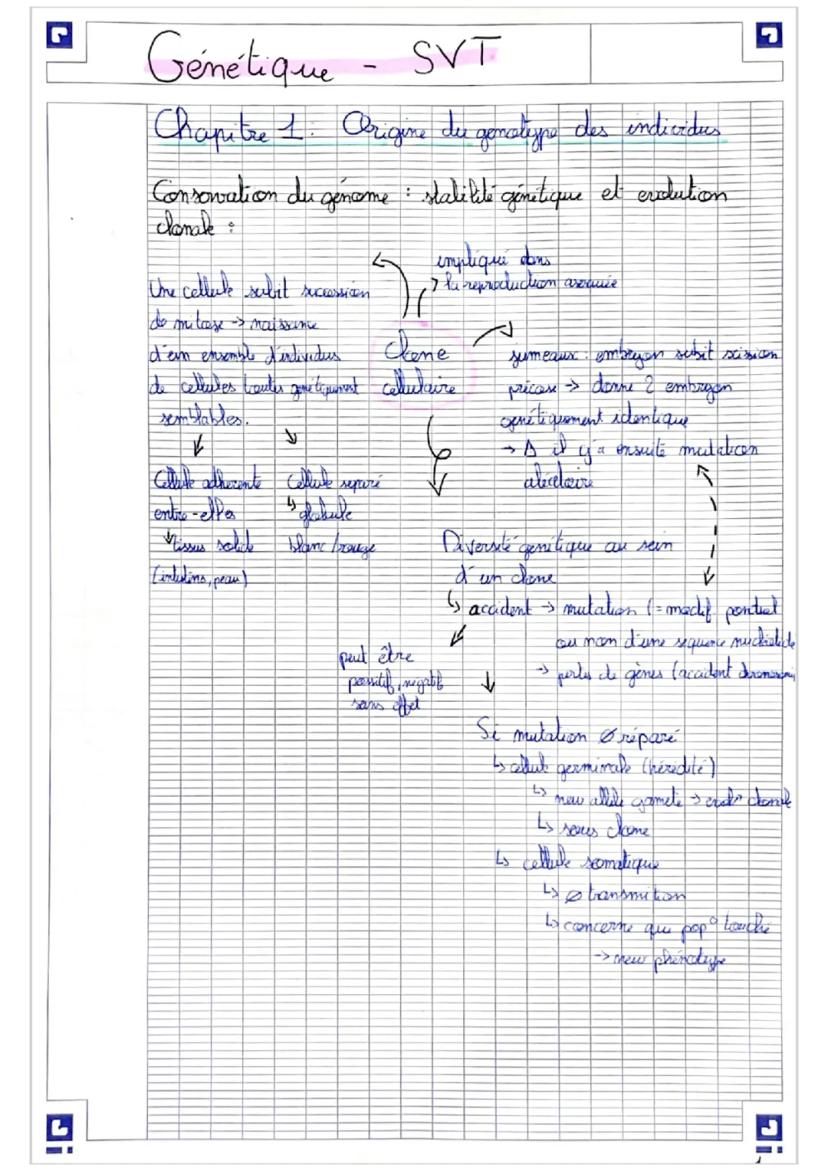 Génétique - SVT
Chapitre 1 : Origine du genotype des individus
Conservation du génome : stabilité génétique et evolution
clonale :
impliqué dans
la reproduction asexuée
Une cellule subit succession
de mitose -> naissance
d'un ensemble d'individus
de cellules toutes génétiquement
semblables.
Clone
cellulaire
jumeaux : embryon subit scission
précose -> donne 2 embryon
génétiquement identique
-> Δ il y a ensuite mutation
aléatoire
Cellule adherente
entre-elles
tissus solide
(intestins, peau)
Cellule separé
↳ globule
blanc/rouge
Diversité génétique au sein
d'un clone
↳ accident -> mutation (= modif ponctuel
ou non d'une sequence nucléotide
-> pertes de gènes (accident
peut être
positif, négatif
sans effet
Si mutation ∅ réparé
↳ cellule germinale (hérédité)
↳ new allèle gamète -> evol° clonale
↳ sous clone
↳ cellule somatique
↳ ∅ transmition
↳ concerne que pop° touché
-> new phénotype